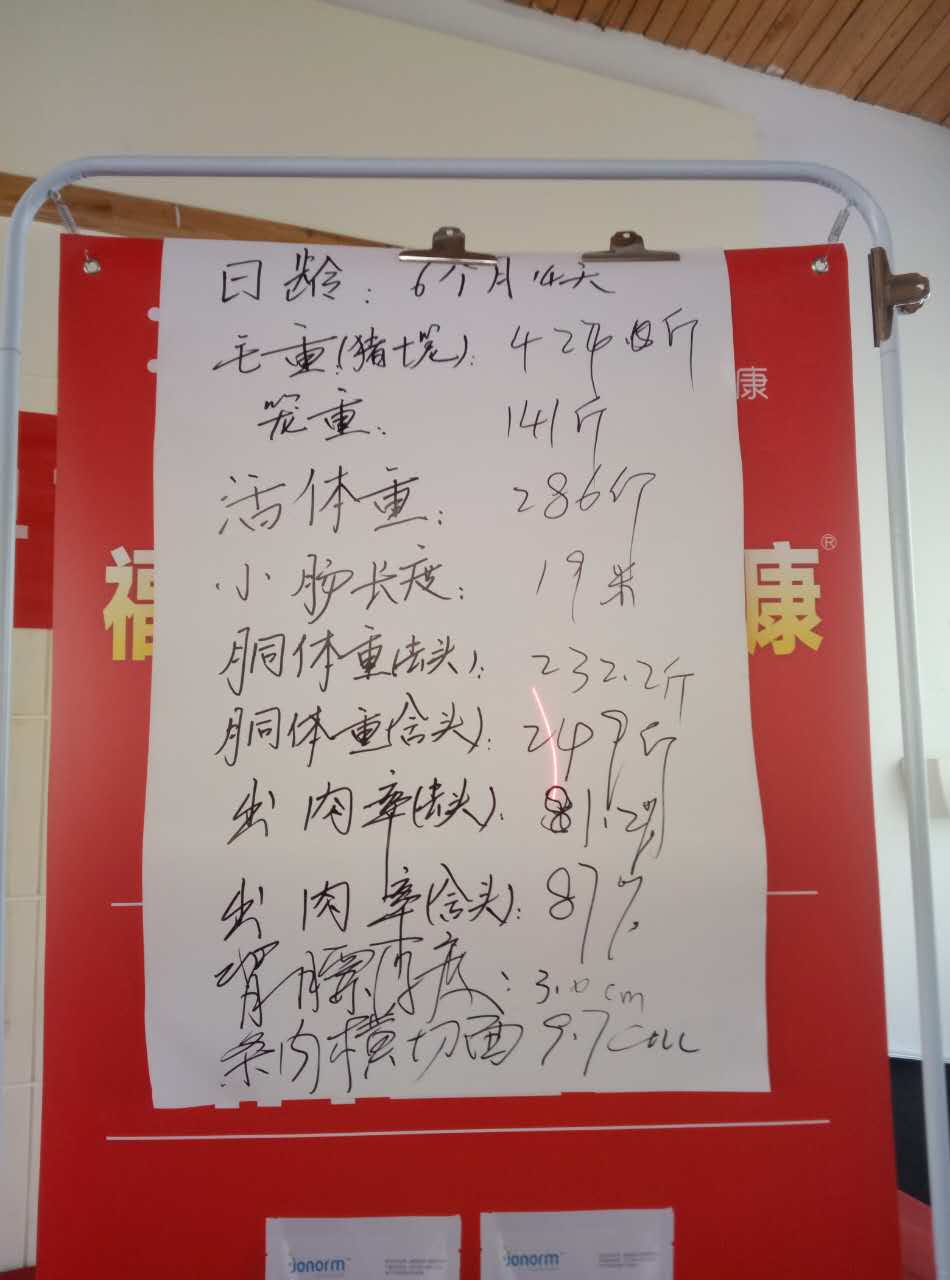 日龄: 6个月14天
毛重(猪+笼): 斤
笼重: 141斤
康
活体重: 286斤
小肠长度: 19米
福 康®
胴体重(去头): 232.2斤
胴体重(含头): 249斤
出肉率(去头): 81.2%
出肉率(含头): 87%
背膘厚度: 3.0cm
条肉横切面 9.7cm
jonorm™ jonorm™